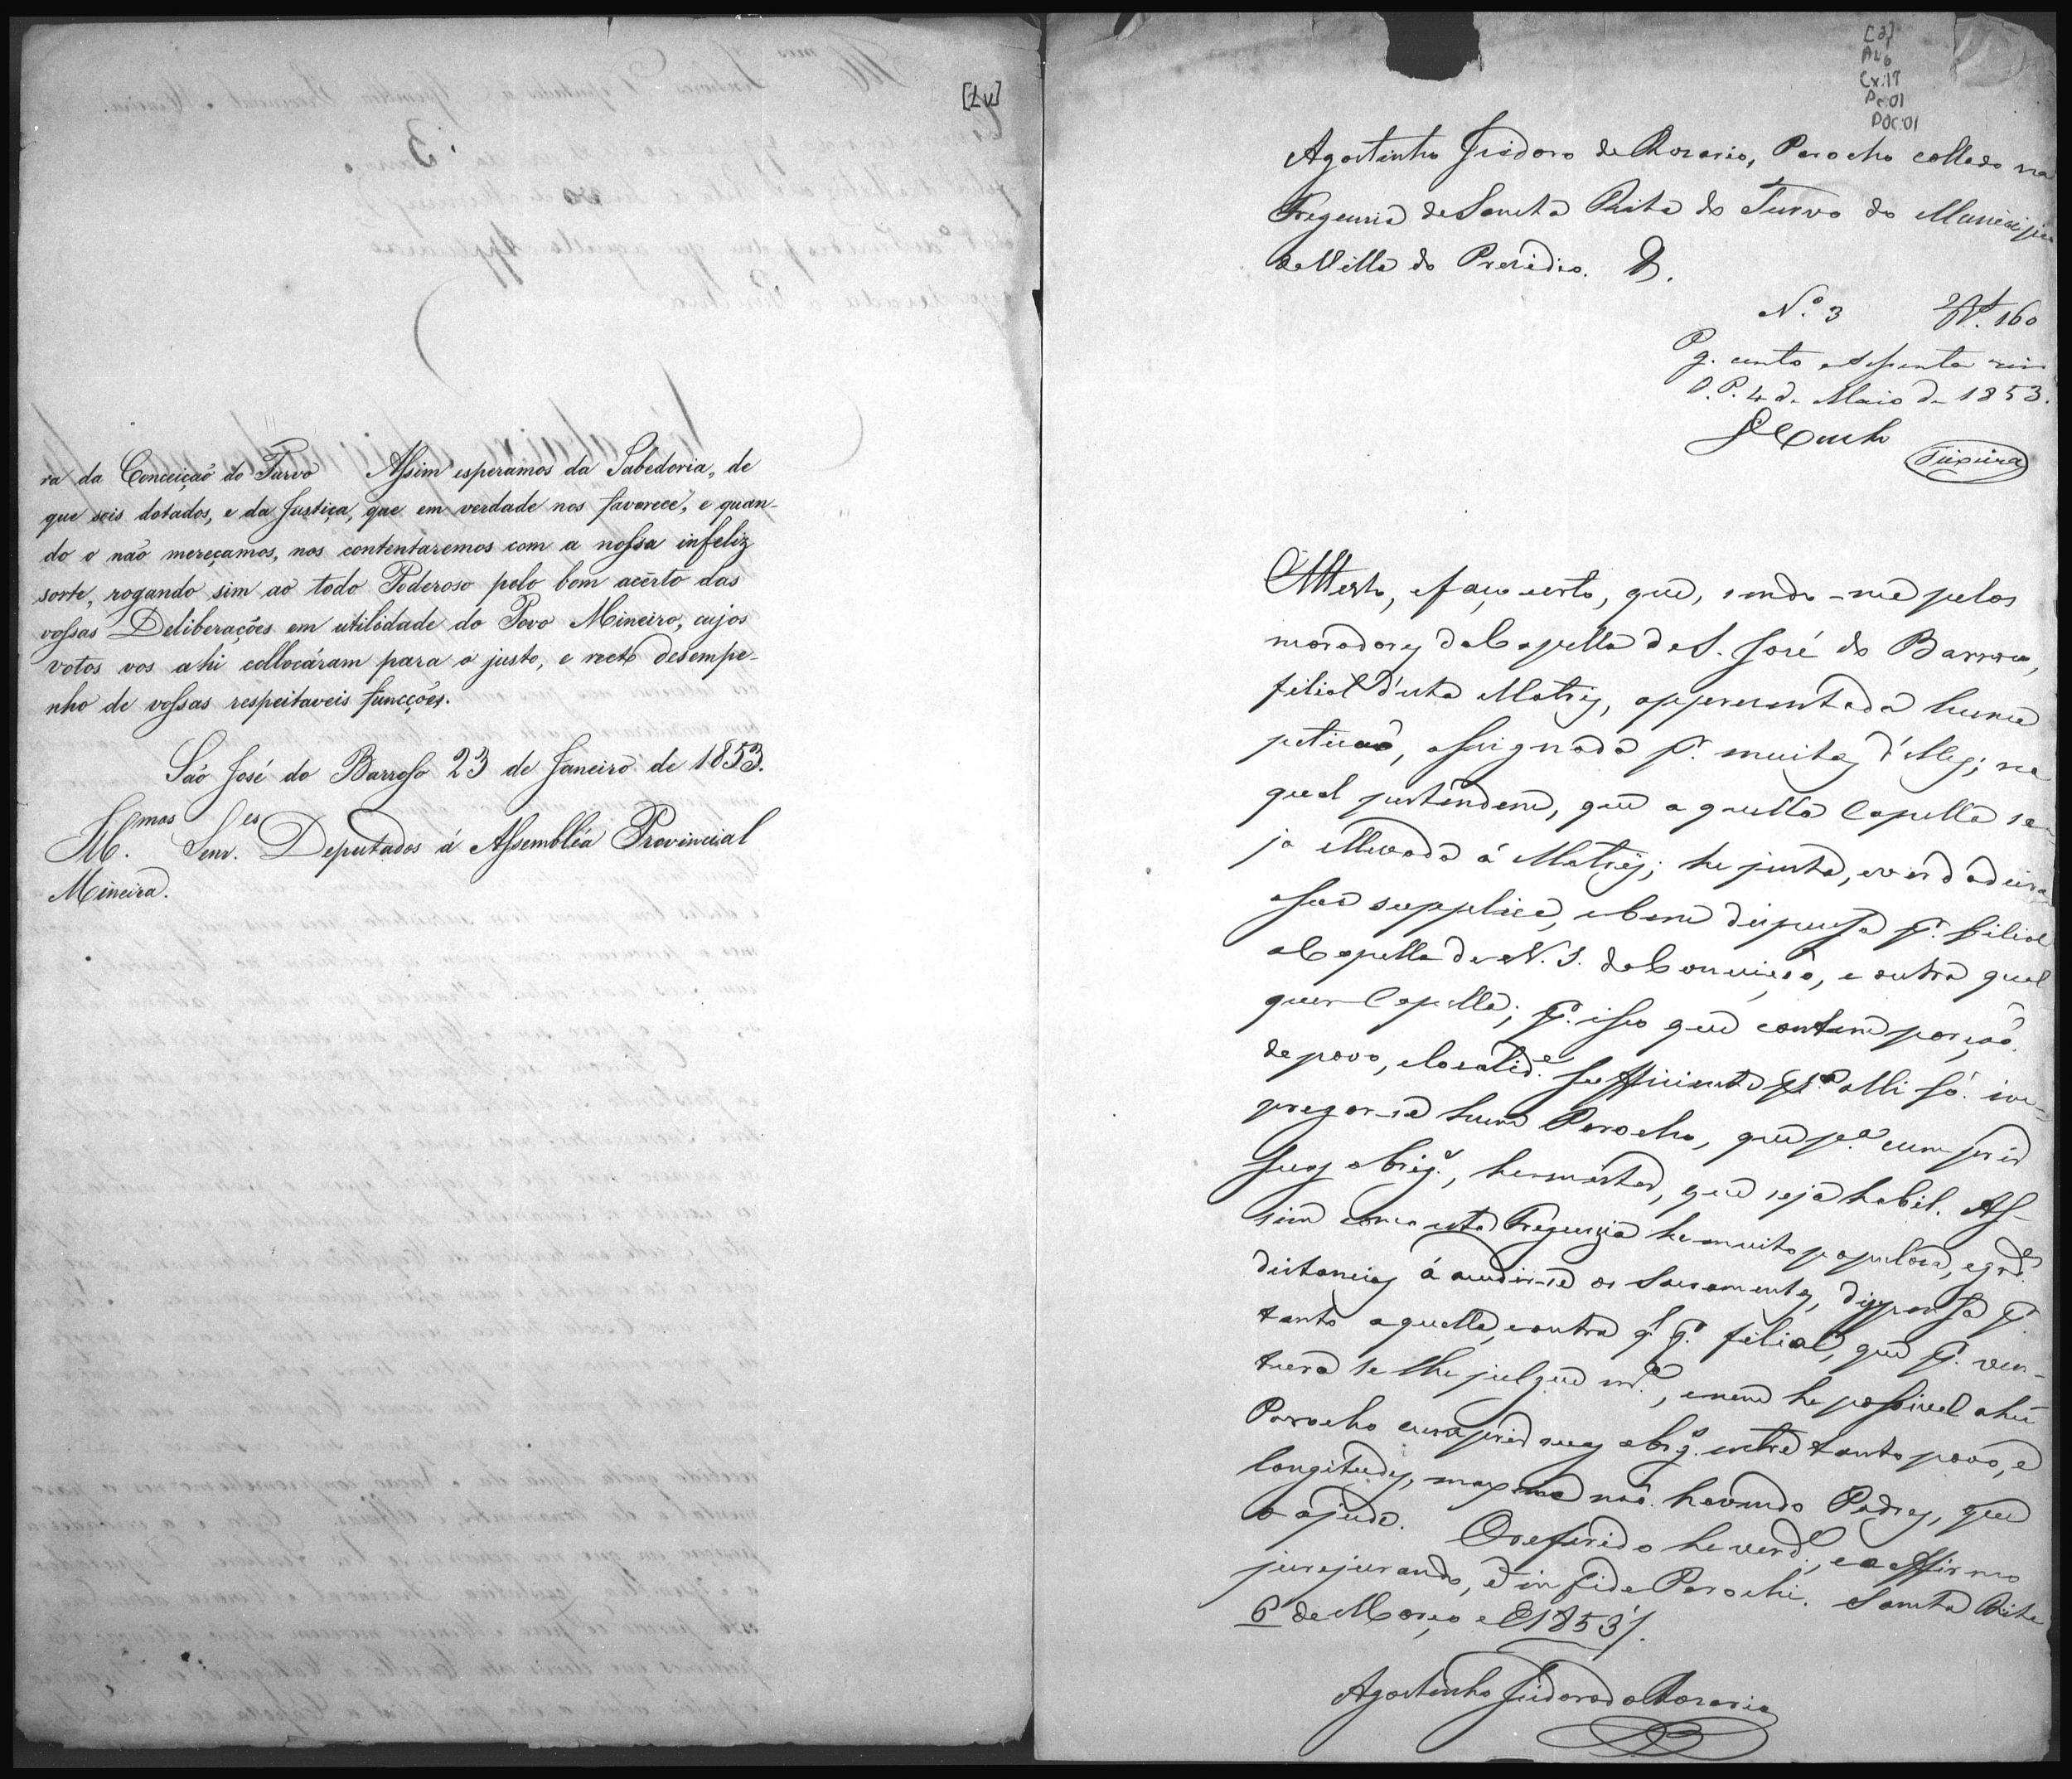 [1v]
ra da Conceição do Turvo Assim esperamos da Sabedoria, de
que sois dotados, e da Justiça, que em verdade nos favorece, e quan-
do o não mereçamos, nos contentaremos com a nossa infeliz
sorte, rogando sim ao todo Poderoso pelo bom acêrto das
vossas Deliberações em utilidade do Povo Mineiro, cujos
votos vos ahi collocáram para o justo, e recto desempe-
nho de vossas respeitaveis funcções.
São José do Barroso 23 de Janeiro de 1853.
Ill.mos Senr.es Deputados á Assembléa Provincial
Mineira.
[2]
AL6
Cx:17
Pc:01
Doc:01
Agostinho Isidoro do Rosario, Parocho collado na
Freguezia de Sancta Rita do Turvo do Municipio
da Villa do Presidio. &.
N.º 3 160
Pg. cento e sessenta reis
O.P. 4 de Maio de 1853.
Teixeira
Attesto, e faço certo, que, sendo-me pelos
moradores da Capella de S. José do Barroso,
filial d'esta Matriz, appresentada huma
petição, assignada pr. muitos d'elles; na
qual pertendem, que aquella Capella se-
ja ellevada á Matriz; he justa, e verdadeira
a sua supplica, e bem dispensa pr. filial
a Capella de N. S. da Conceição, e outra qual
quer Capella; pr. isso que contem porção
de povo, e localid.e sufficiente pa. alli só em-
pregar-se hum Parocho, que pa. cumprir
suas obrig.es, he mister, que seja habil. As-
sim como esta Freguezia he muito populosa, e gr.des
distancias á acudir-se os Sacramentos, dispensa pr.
tanto aquella, e outra ql. qr. filial, que pr. ven-
tura se lhe julgue, e nem he possivel a hũ
Parocho cumprir suas obrig.es entre tanto povo, e
longitudes, maxime não havendo Padres, que
o ajude. O referido he verd.e, e o affirmo
jurejurando, et in fide Parochi. Sancta Rita
6 de Março de 1853.
Agostinho Isidoro do Rosario